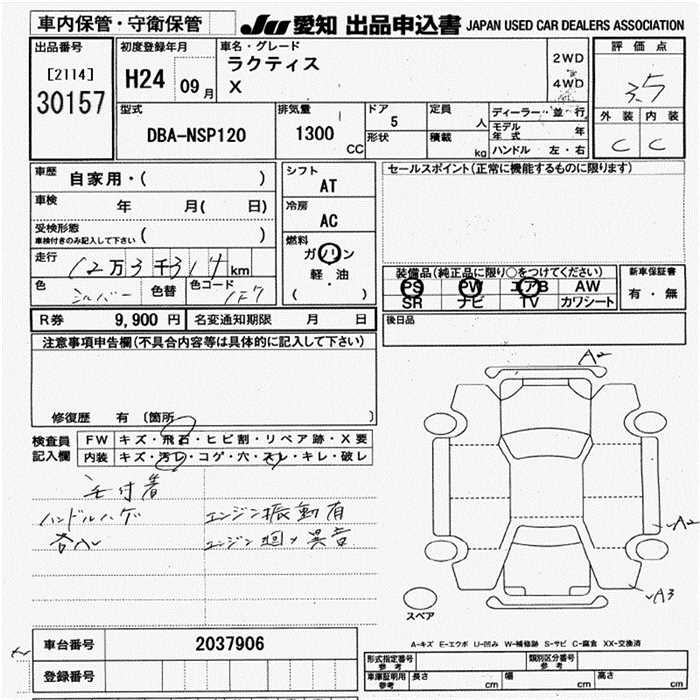 車内保管・守衛保管
JU 愛知 出品申込書 JAPAN USED CAR DEALERS ASSOCIATION
出品番号
[2114]
30157
初度登録年月
H24 09月
車名・グレード
ラクティス
X
2WD
4WD
評価点
3.5
外装 内装
C C
型式
DBA-NSP120
排気量
1300 CC
ドア
5
形状
定員 人
積載 kg
ディーラー・並行
モデル年式 年
ハンドル 左・右
車歴 自家用・( )
車検 年 月( 日)
受検形態
車検付きのみ記入して下さい ( )
走行 12万3千314km
色 シルバー 色替 色コード 1F7
シフト
AT
冷房
AC
燃料
ガソリン
軽・油
( )
セールスポイント(正常に機能するものに限ります)
装備品(純正品に限り○をつけてください)
PS PW エアB AW
SR ナビ TV カワシート
新車保証書
有・無
R券 9,900 円 名変通知期限 月 日
後日品
注意事項申告欄(不具合内容等は具体的に記入して下さい)
修復歴 有 〔箇所 〕
検査員記入欄
FW キズ・飛石・ヒビ割・リペア跡・X要
内装 キズ・汚レ・コゲ・穴・スレ・キレ・破レ
ハンドルハゲ エンジン振動有
エンジン 異音
A2
A2
A3
スペア
A-キズ E-エクボ U-凹み W-補修跡 S-サビ C-腐食 XX-交換済
車台番号 2037906
登録番号
形式指定番号 参考 類別区分番号 参考
車庫証明用 参考 長さ cm 幅 cm 高さ cm